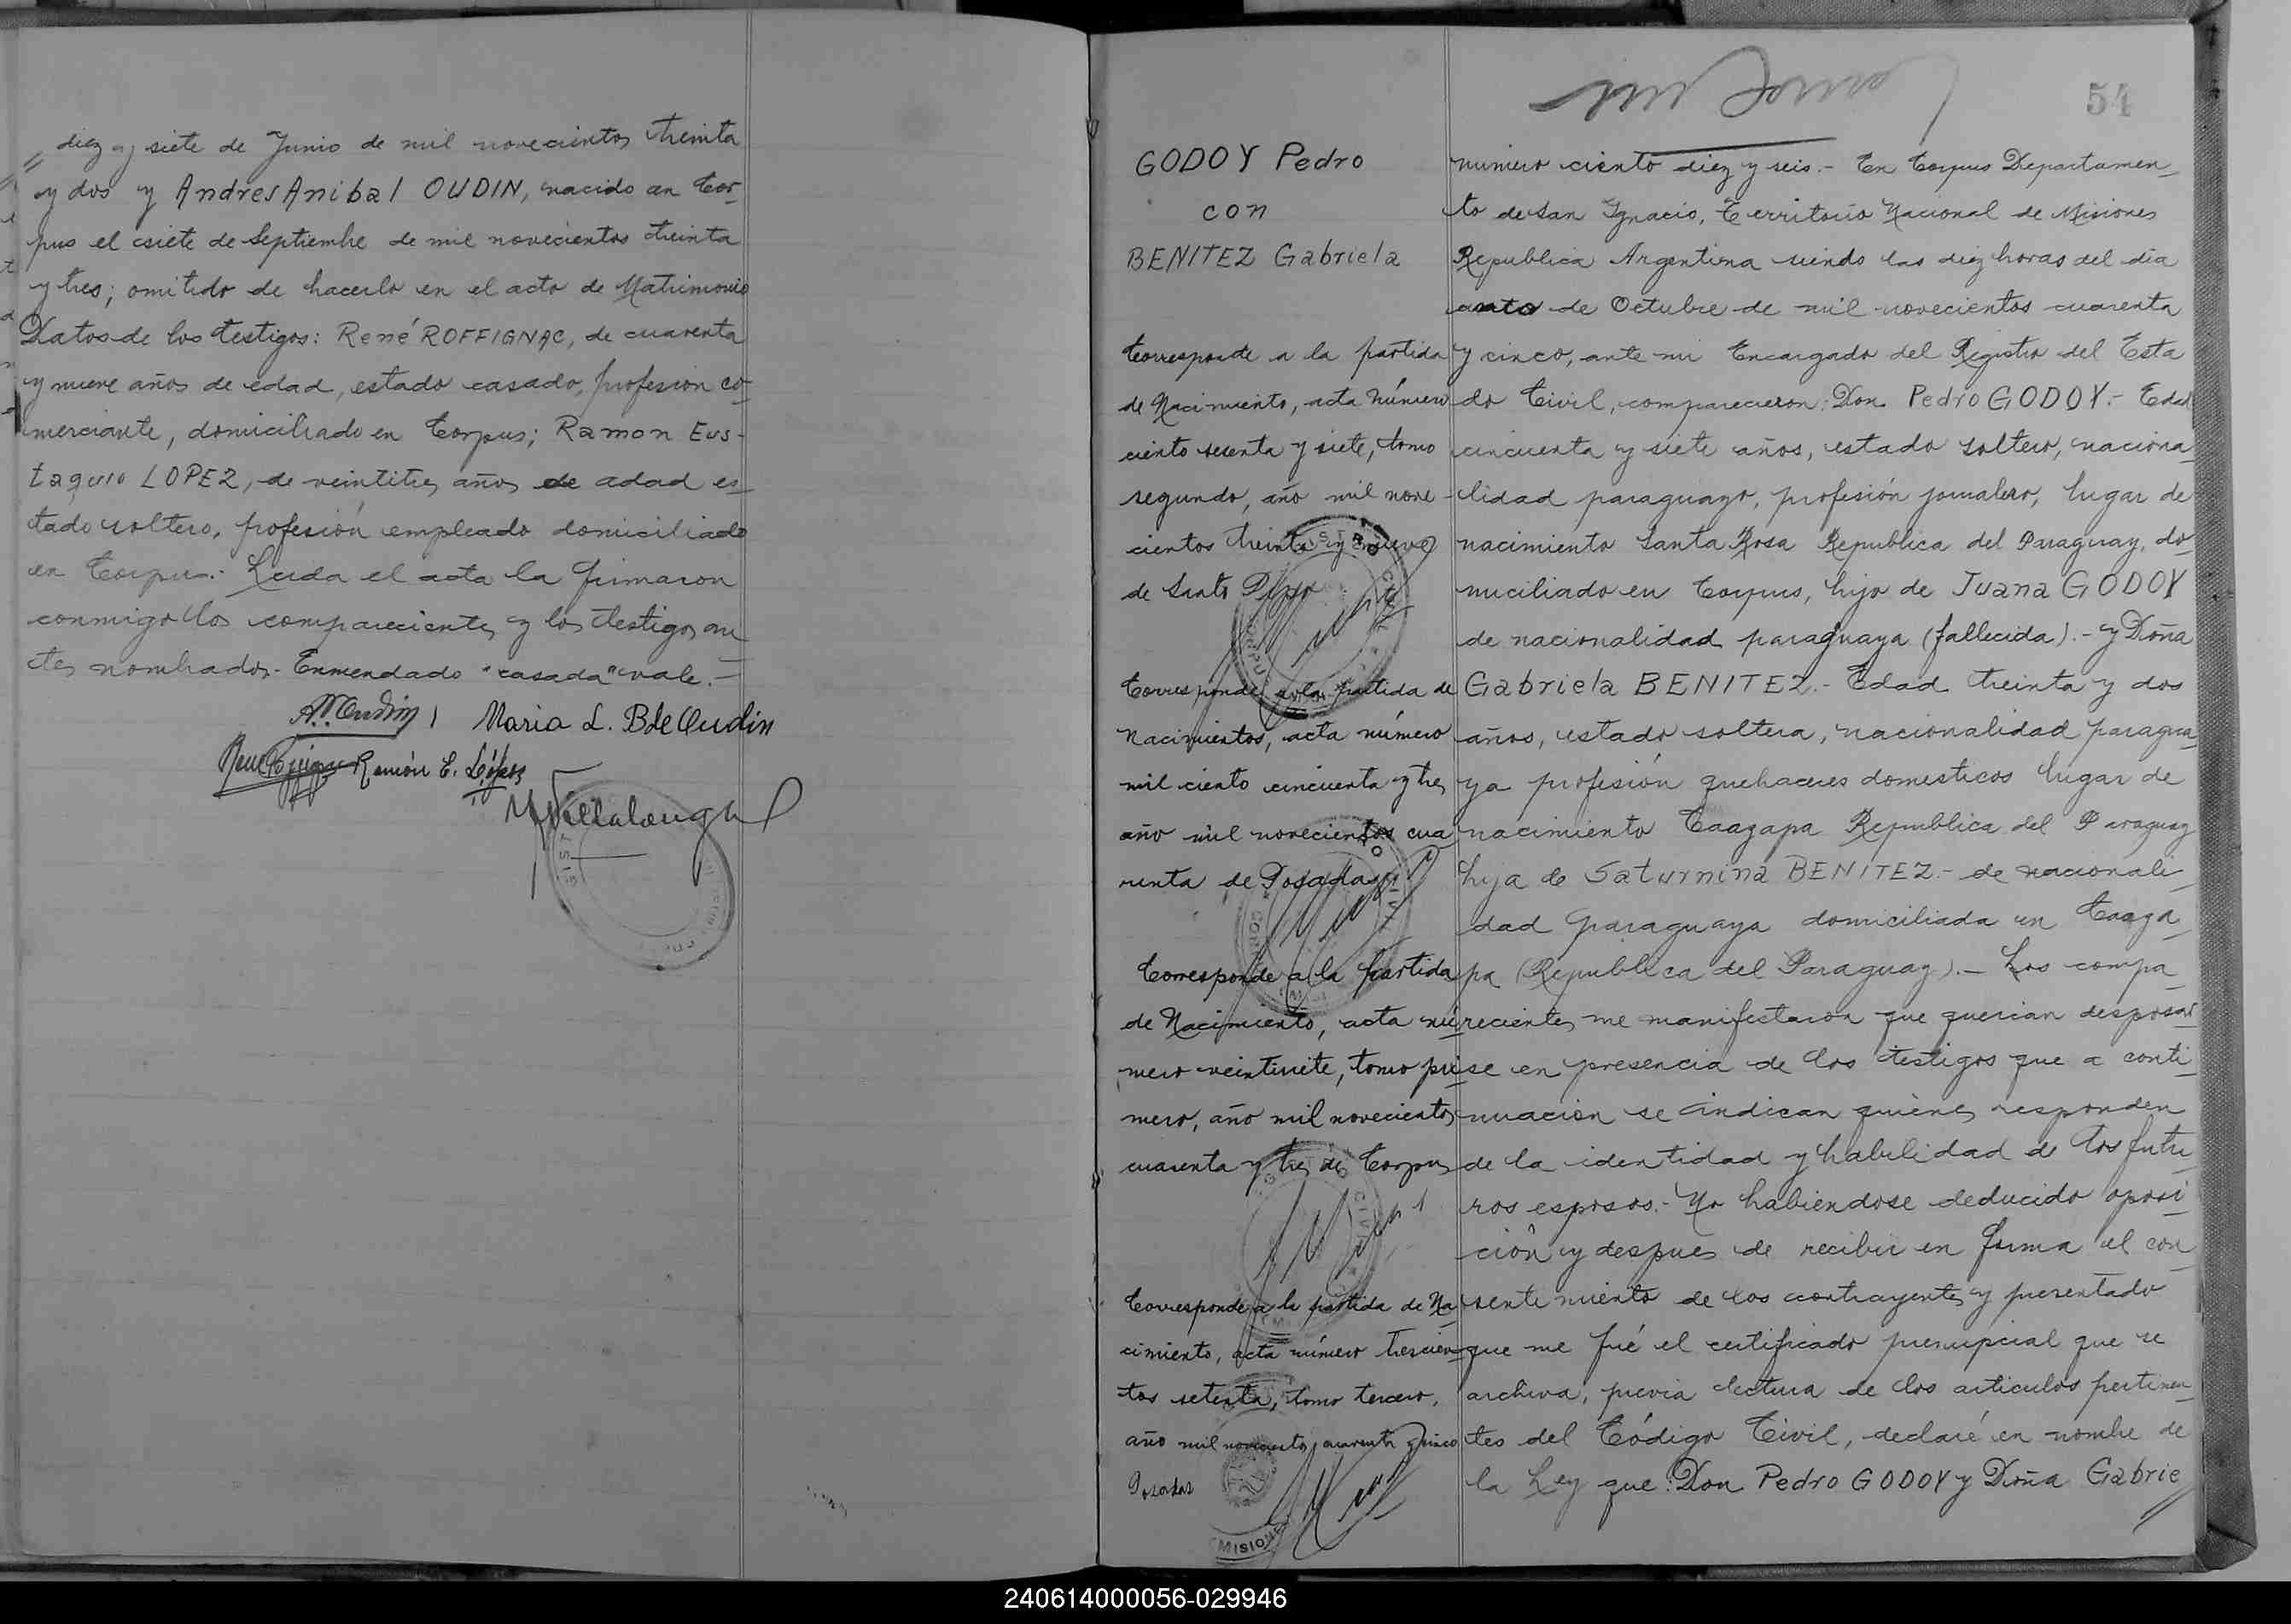 diez y siete de Junio de mil novecientos treinta
y dos y Andres Anibal OUDIN, nacido en Cor-
pus el siete de Septiembre de mil novecientos treinta
y tres; omitido de hacerlo en el acto de Matrimonio
Datos de los testigos: René ROFFIGNAC, de cuarenta
y nueve años de edad, estado casado, profesión co-
merciante, domiciliado en Corpus; Ramon Eus-
taquio LOPEZ, de veintitres años de edad es-
tado soltero, profesión empleado domiciliado
en Corpus.- Leida el acta la firmaron
conmigo los comparecientes y los testigos an
tes nombrados.- Enmendado "casada" vale.-
Maria L. B de Oudin
Ramón E. López
54
GODOY Pedro
con
BENITEZ Gabriela
Corresponde a la partida
de Nacimiento, acta número
ciento sesenta y siete, tomo
segundo, año mil nove-
cientos treinta y nueve
de Santo Pipo
Corresponde a la partida de
Nacimientos, acta número
mil ciento cincuenta y tres
año mil novecientos cua
renta de Posadas
Corresponde a la partida
de Nacimiento, acta nú-
mero veintisiete, tomo pri-
mero, año mil novecientos
cuarenta y tres de Corpus
Corresponde a la partida de Na-
cimiento, acta número trescien-
tos setenta, tomo tercero,
año mil novecientos cuarenta y cinco
Posadas
MISIONES
número ciento diez y seis.- En Corpus Departamen-
to de San Ignacio, Territorio Nacional de Misiones
Republica Argentina siendo las diez horas del dia
de Octubre de mil novecientos cuarenta
y cinco, ante mi Encargado del Registro del Esta
do Civil, comparecieron: Don Pedro GODOY.- Edad
cincuenta y siete años, estado soltero, naciona-
lidad paraguayo, profesión jornalero, lugar de
nacimiento Santa Rosa Republica del Paraguay, do-
miciliado en Corpus, hijo de Juana GODOY
de nacionalidad paraguaya (fallecida).- y Doña
Gabriela BENITEZ.- Edad treinta y dos
años, estado soltera, nacionalidad paragua-
ya profesión quehaceres domesticos lugar de
nacimiento Caazapa Republica del Paraguay
hija de Saturnina BENITEZ.- de nacionali-
dad paraguaya domiciliada en Caaza-
pa (Republica del Paraguay).- Los compa-
recientes me manifestaron que querian desposar-
se en presencia de los testigos que a conti-
nuación se indican quienes responden
de la identidad y habilidad de los futu-
ros esposos.- No habiendose deducido oposi-
ción y despues de recibir en forma el con-
sentimiento de los contrayentes y presentado
que me fué el certificado prenupcial que se
archiva, previa lectura de los articulos pertinen-
tes del Código Civil, declaré en nombre de
la Ley que: Don Pedro GODOY y Doña Gabrie
240614000056-029946